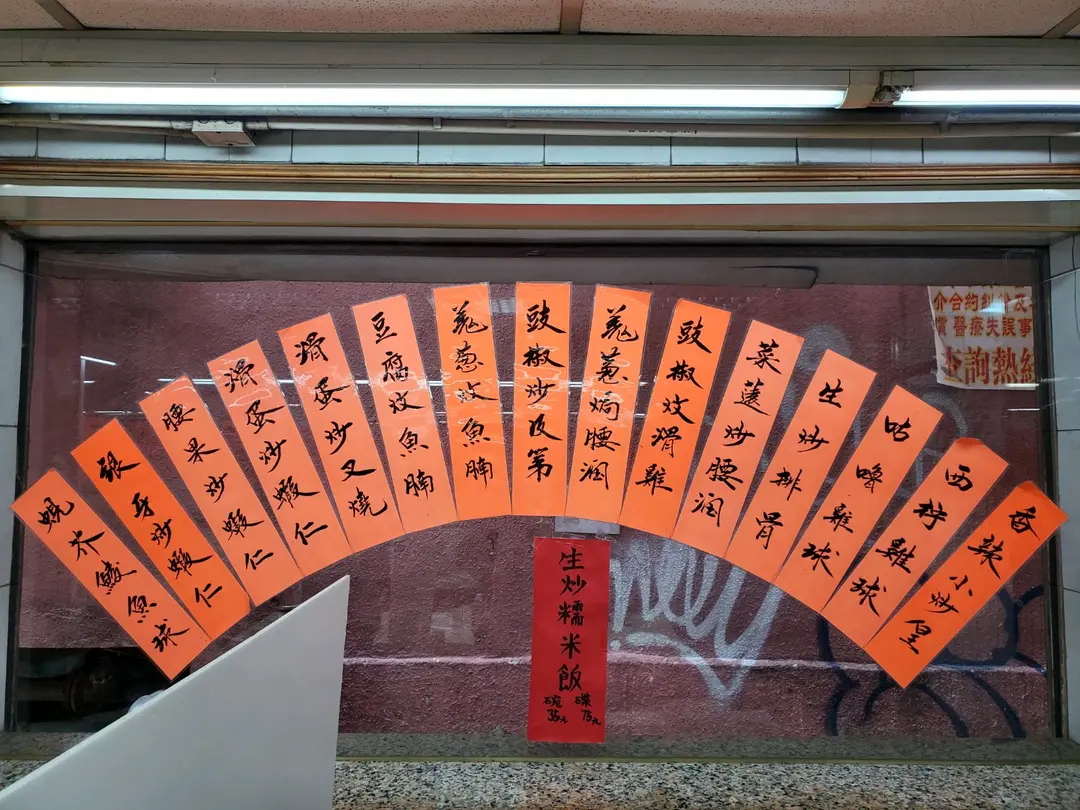 蜆介鯪魚球
銀牙炒蝦仁
腰果炒蝦仁
滑蛋炒蝦仁
滑蛋炒叉燒
豆腐炆魚腩
羗葱炆魚腩
豉椒炒及第
羗葱焗腰潤
豉椒炆滑雞
菜薳炒腰潤
生炒排骨
咕嚕雞球
西柠雞球
香辣小炒皇
生炒糯米飯
碗 碟
35元 75元
介合約糾紛及
醫療失誤事
查詢熱線